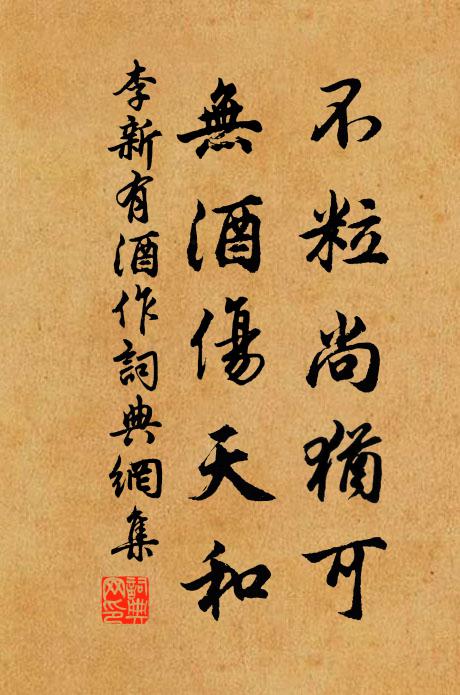 不粒尚猶可
無酒傷天和
李新有酒作詞典網集
詞典
网印